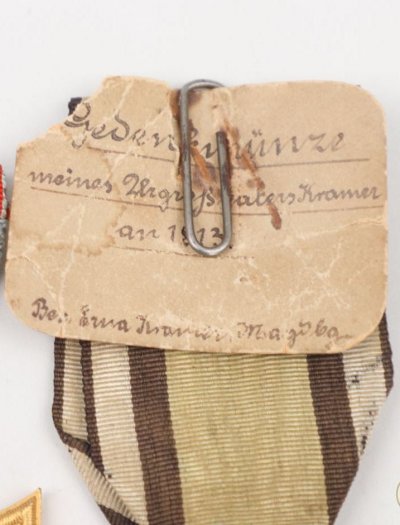 Gedenkmünze
meines Urgroßvaters Kramer
an 1813.
Bes. Erna Kramer, Magdbg.